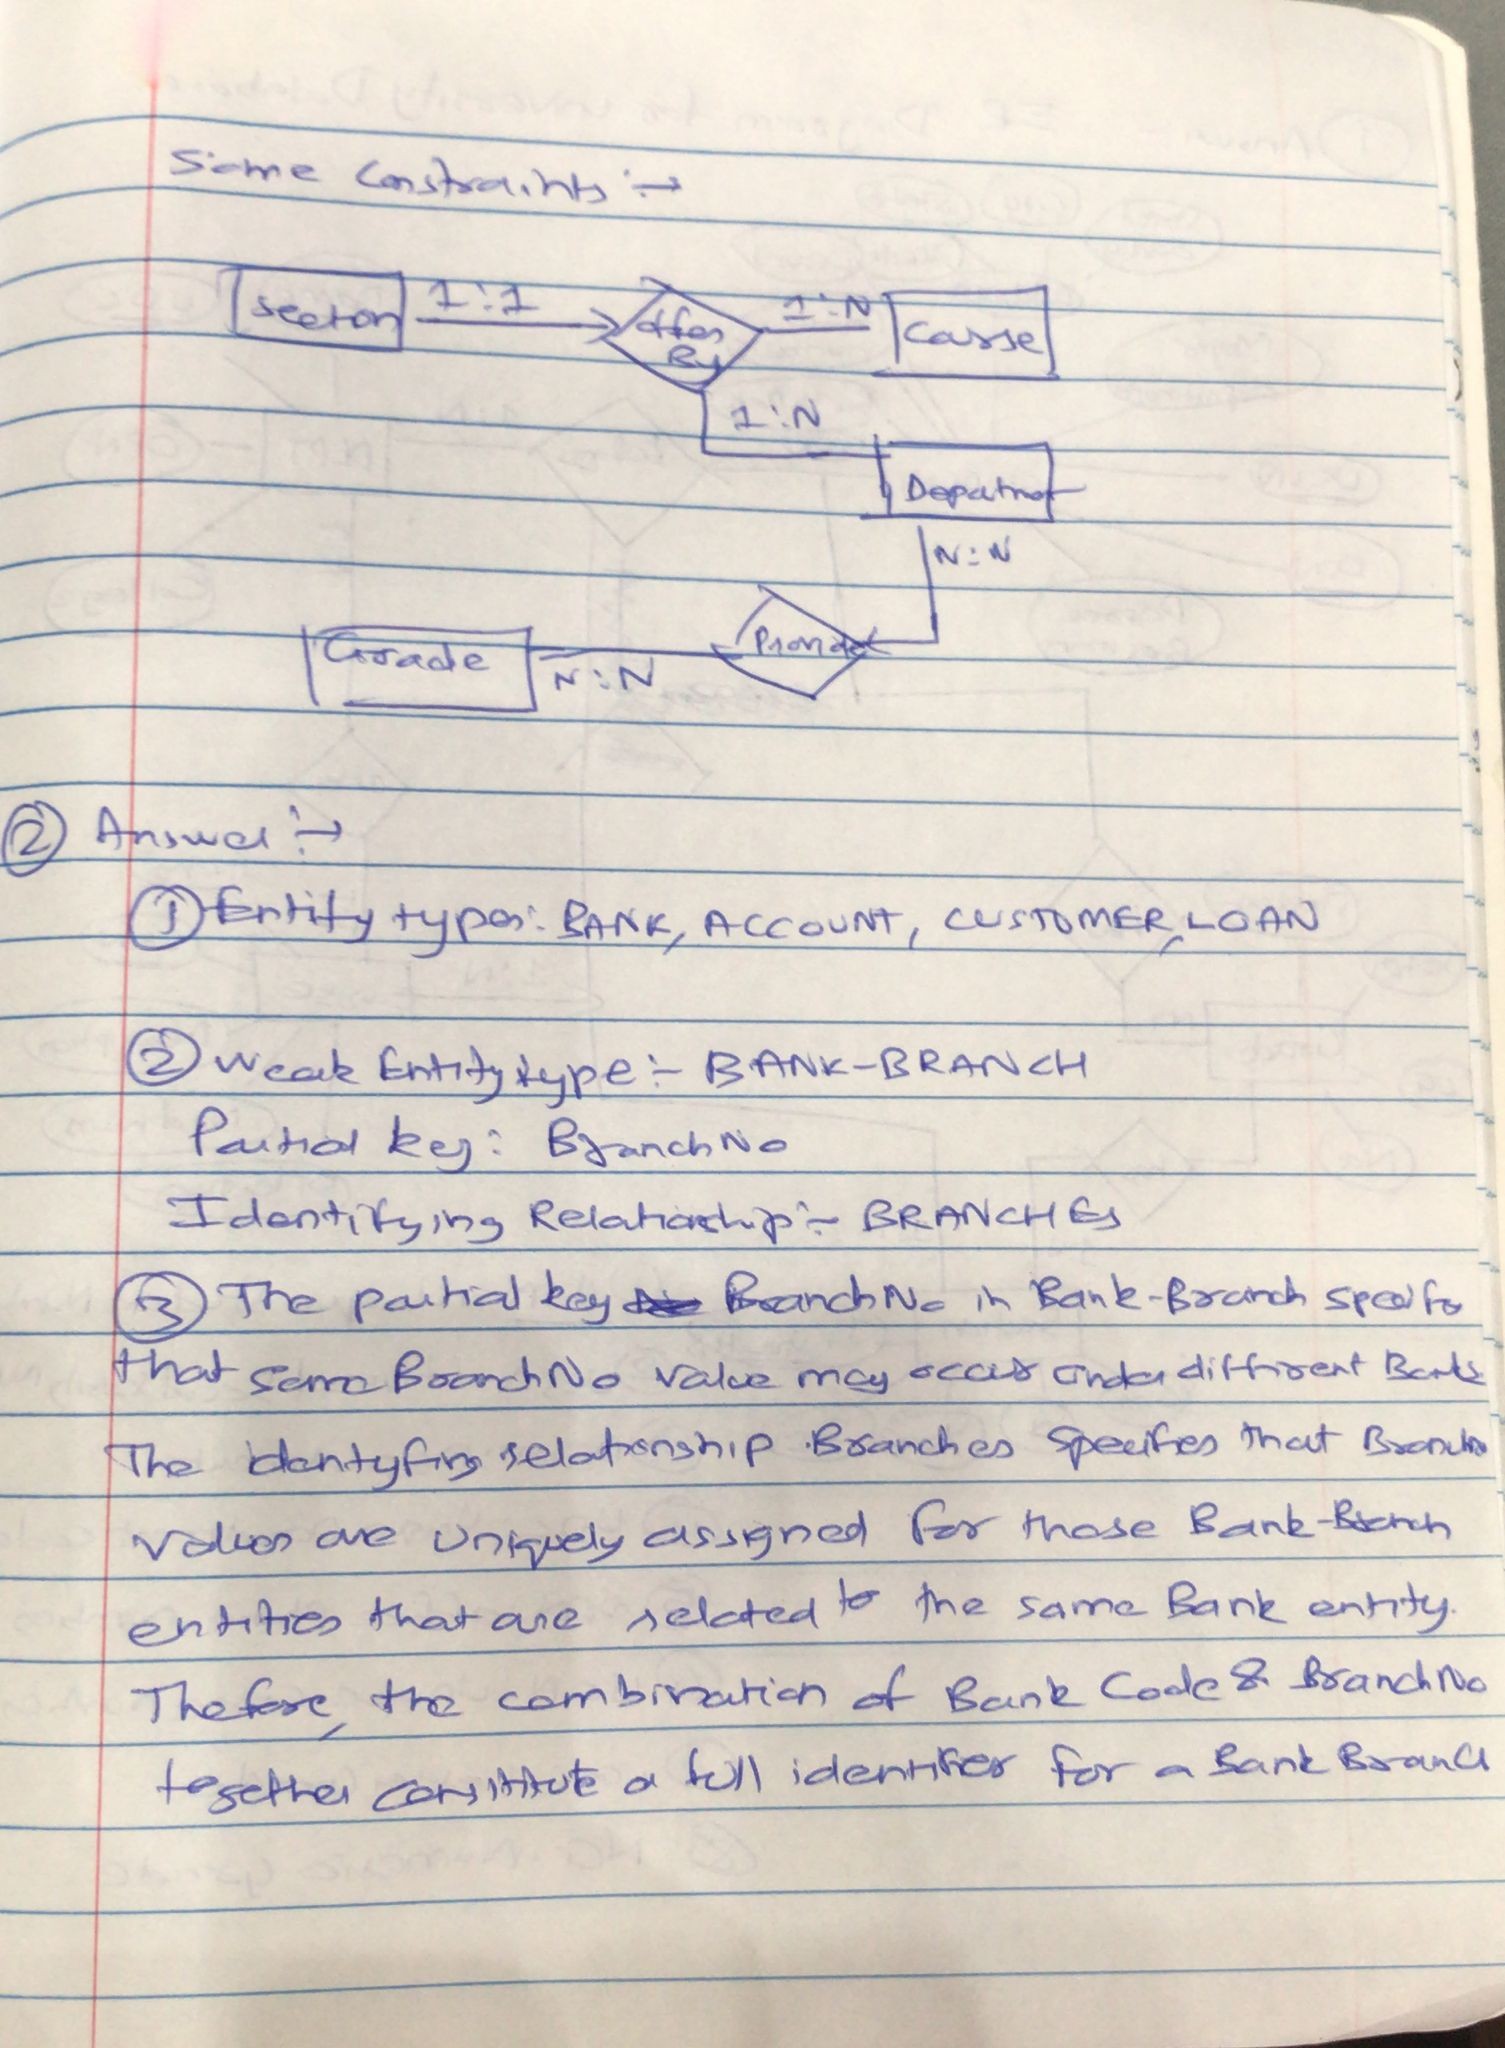 Some Constraints :→
Section 1:1 offer By 1:N Course
1:N
Depatment
N:N
Provide
Grade N:N
② Answer :→
① Entity types: BANK, ACCOUNT, CUSTOMER, LOAN
② Weak Entity type :- BANK-BRANCH
Partial key: BranchNo
Identifying Relationship :- BRANCHES
③ The partial key BranchNo in Bank-Branch specifies
that same BranchNo value may occur under different Banks
The identyfing relationship Branches specifies that BranchNo
values are uniquely assigned for those Bank-Branch
entities that are related to the same Bank entity.
Thefore, the combination of Bank Code & BranchNo
together constitute a full identifier for a Bank Branch